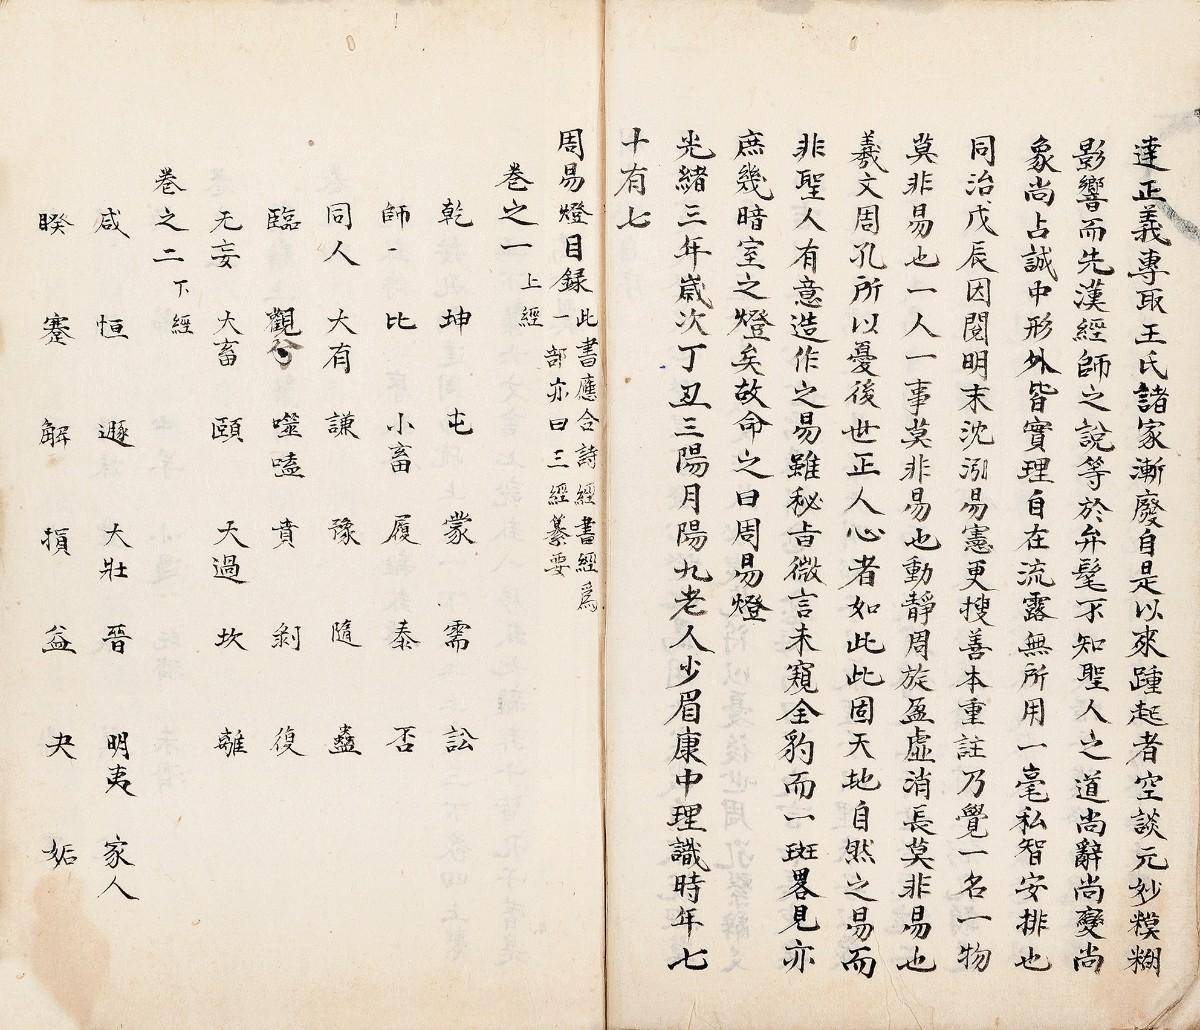 達正義專取王氏諸家漸廢自是以來踵起者空談元妙糢糊
影響而先漢經師之說等於弁髦不知聖人之道尚辭尚變尚
象尚占誠中形外皆實理自在流露無所用一毫私智安排也
同治戊辰因閱明末沈泓易憲更搜善本重註乃覺一名一物
莫非易也一人一事莫非易也動靜周旋盈虛消長莫非易也
羲文周孔所以憂後世正人心者如此此固天地自然之易而
非聖人有意造作之易雖秘旨微言未窺全豹而一斑畧見亦
庶幾暗室之燈矣故命之曰周易燈
光緒三年歲次丁丑三陽月陽九老人少眉康中理識時年七
十有七
周易燈目録此書應合詩經書經爲
一部亦曰三經纂要
卷之一上經
乾 坤 屯 蒙 需 訟
師 比 小畜 履 泰 否
同人 大有 謙 豫 隨 蠱
臨 觀 噬嗑 賁 剝 復
无妄 大畜 頤 大過 坎 離
卷之二下經
咸 恒 遯 大壯 晉 明夷 家人
睽 蹇 解 損 益 夬 姤